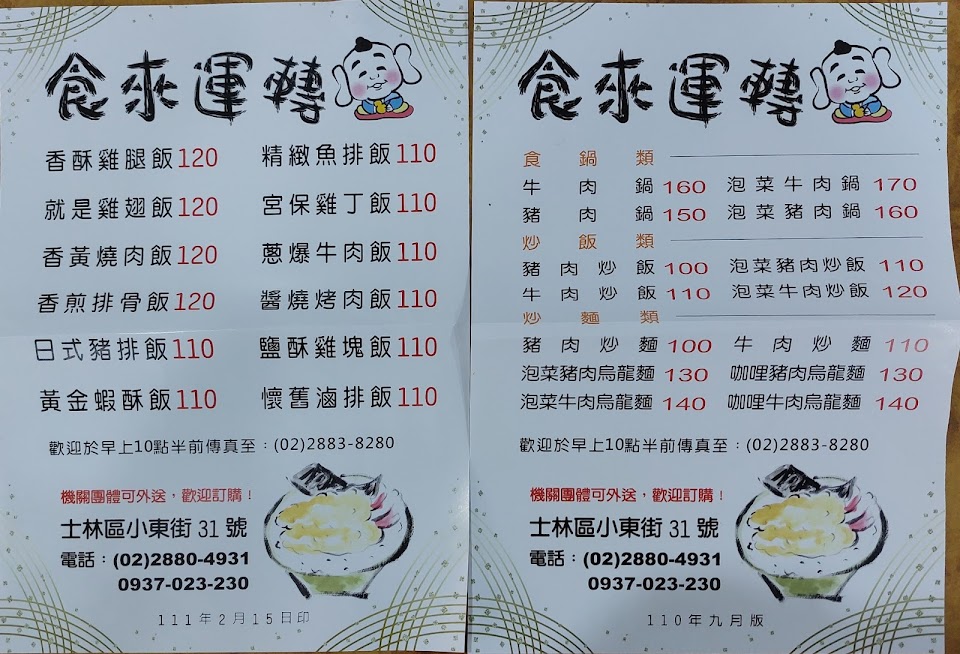 食來運轉
香酥雞腿飯120 精緻魚排飯110
就是雞翅飯120 宮保雞丁飯110
香黃燒肉飯120 蔥爆牛肉飯110
香煎排骨飯120 醬燒烤肉飯110
日式豬排飯110 鹽酥雞塊飯110
黃金蝦酥飯110 懷舊滷排飯110
歡迎於早上10點半前傳真至：(02)2883-8280
機關團體可外送，歡迎訂購！
士林區小東街 31 號
電話：(02)2880-4931
0937-023-230
111年2月15日印
食來運轉
食鍋類
牛肉鍋160 泡菜牛肉鍋170
豬肉鍋150 泡菜豬肉鍋160
炒飯類
豬肉炒飯100 泡菜豬肉炒飯110
牛肉炒飯110 泡菜牛肉炒飯120
炒麵類
豬肉炒麵100 牛肉炒麵110
泡菜豬肉烏龍麵130 咖哩豬肉烏龍麵130
泡菜牛肉烏龍麵140 咖哩牛肉烏龍麵140
歡迎於早上10點半前傳真至：(02)2883-8280
機關團體可外送，歡迎訂購！
士林區小東街 31 號
電話：(02)2880-4931
0937-023-230
110年九月版